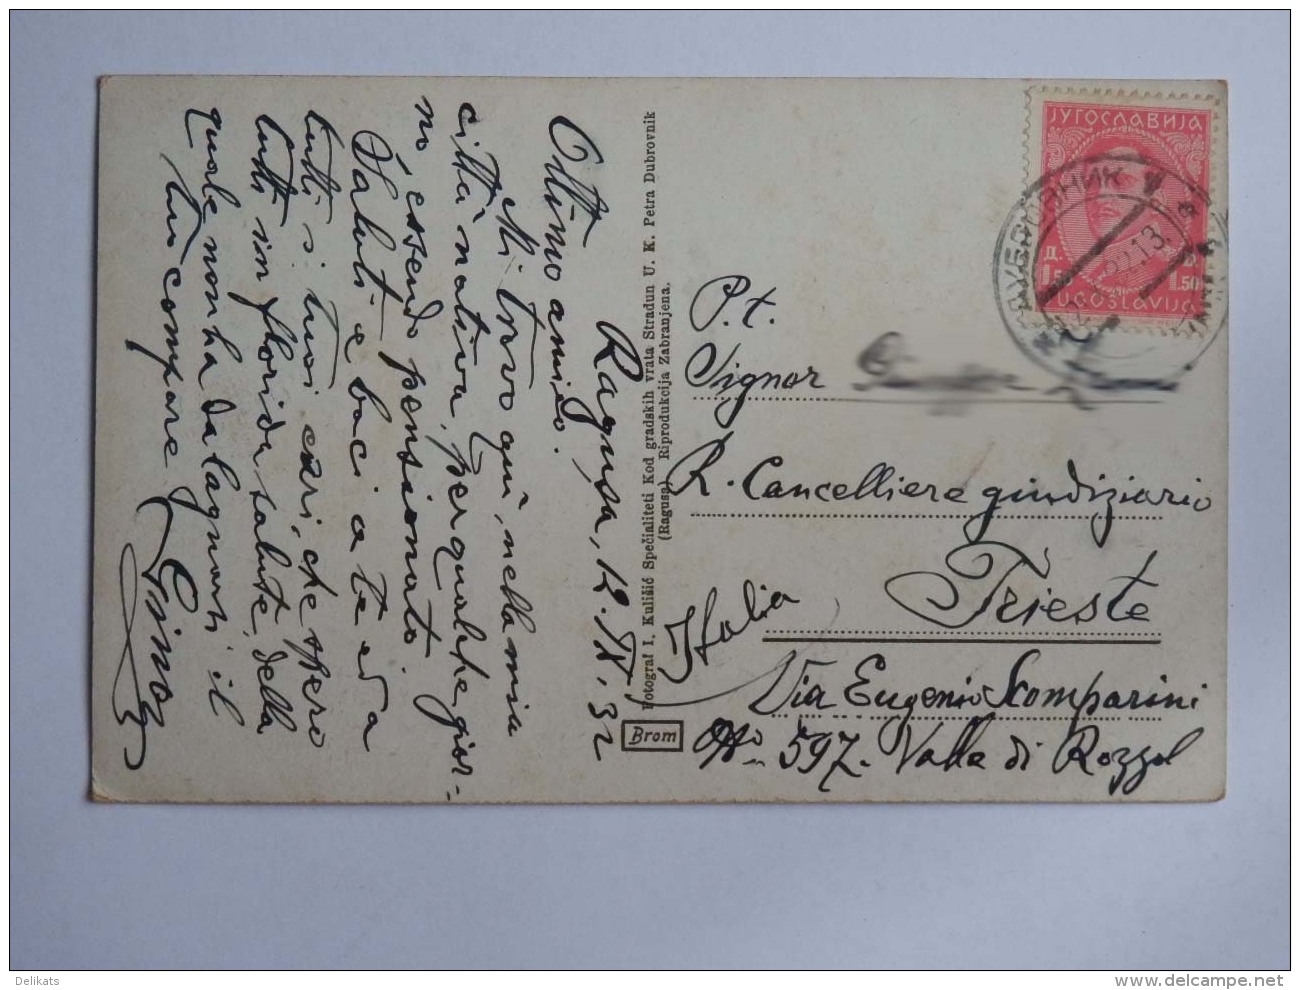 Ragusa, 12. IX. 32
Ottimo amico.
Mi trovo quì, nella mia
città nativa, per qualche gior-
no, essendo pensionato.
Saluti e baci a te ed a
tutti i tuoi cari, che spero
tutti in florida salute, della
quale non ha da lagnarsi il
tuo compare
Fotograf I. Kulišić Specialiteti Kod gradskih vrata Stradun U. K. Petra Dubrovnik
(Ragusa) Riprodukcija Zabranjena.
Brom
ЈУГОСЛАВИЈА
Д.
1.50
JUGOSLAVIJA
ДУБРОВНИК
P. t.
Signor
R. Cancelliere giudiziario
Trieste
Italia
Via Eugenio Scomparini
No 597. Valle di Rozzol
Delikats
www.delcampe.net